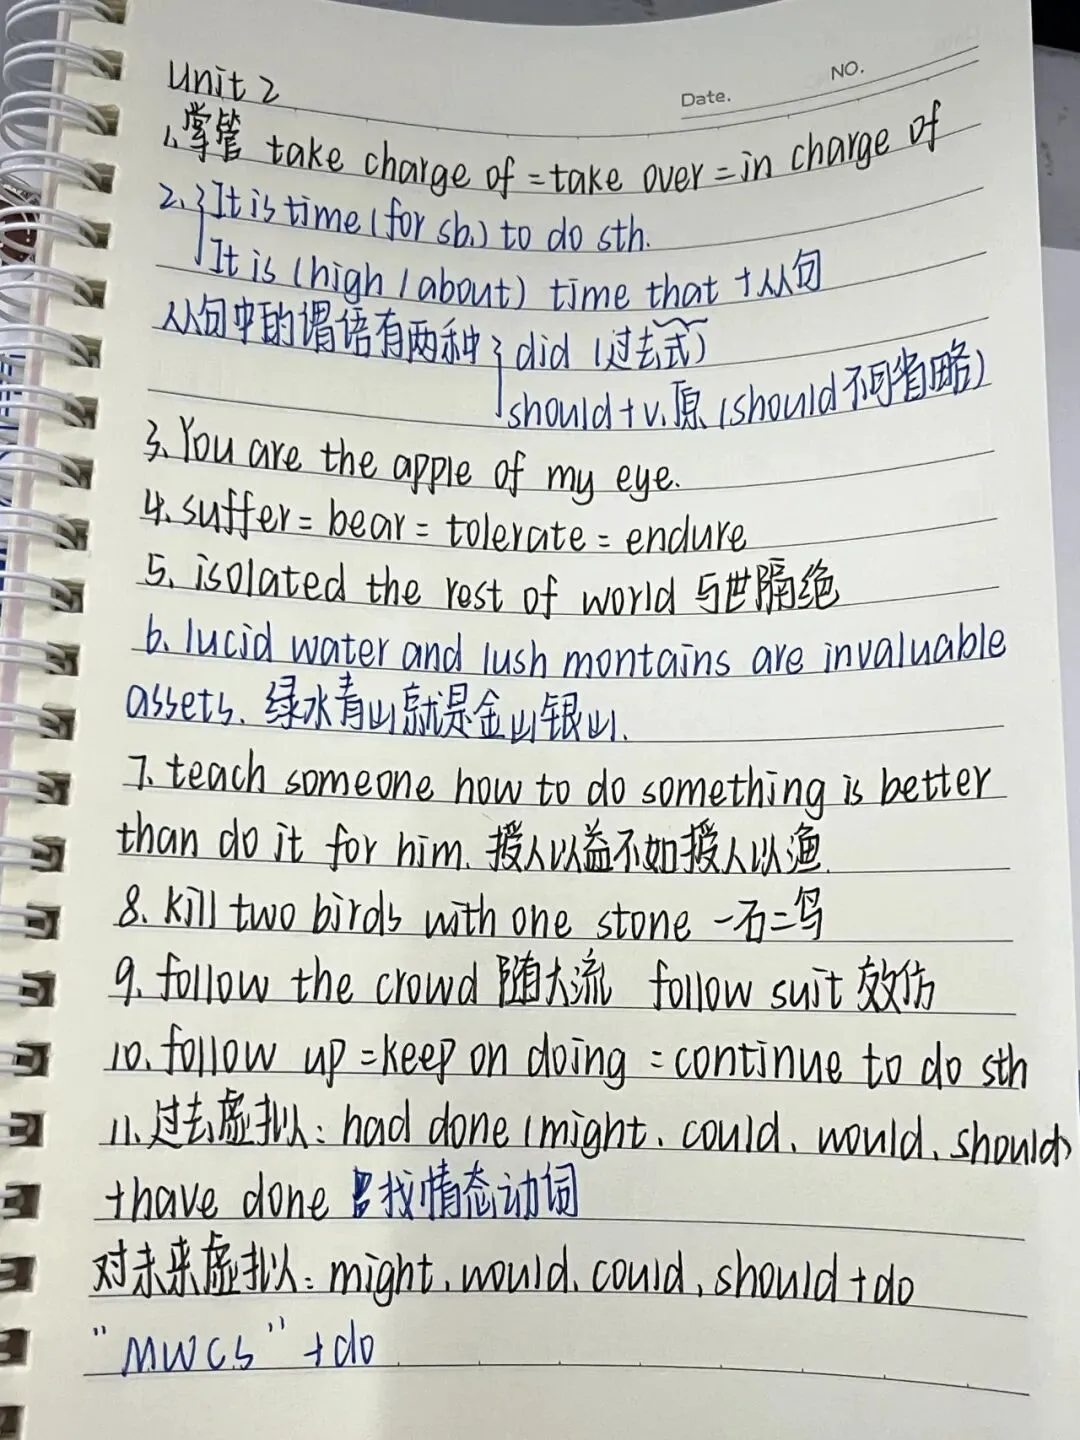 Unit 2
Date.
NO.
1.掌管 take charge of = take over = in charge of
2. { It is time (for sb.) to do sth.
It is (high / about) time that + 从句
从句中的谓语有两种 { did (过去式)
should + v.原 (should 不可省略)
3. You are the apple of my eye.
4. suffer = bear = tolerate = endure
5. isolated the rest of world 与世隔绝
6. lucid water and lush montains are invaluable
assets. 绿水青山就是金山银山.
7. teach someone how to do something is better
than do it for him. 授人以益不如授人以渔.
8. kill two birds with one stone 一石二鸟
9. follow the crowd 随大流 follow suit 效仿
10. follow up = keep on doing = continue to do sth
11. 过去虚拟: had done (might、could、would、should)
+ have done 找情态动词
对未来虚拟: might、would、could、should + do
"MWCS" + do